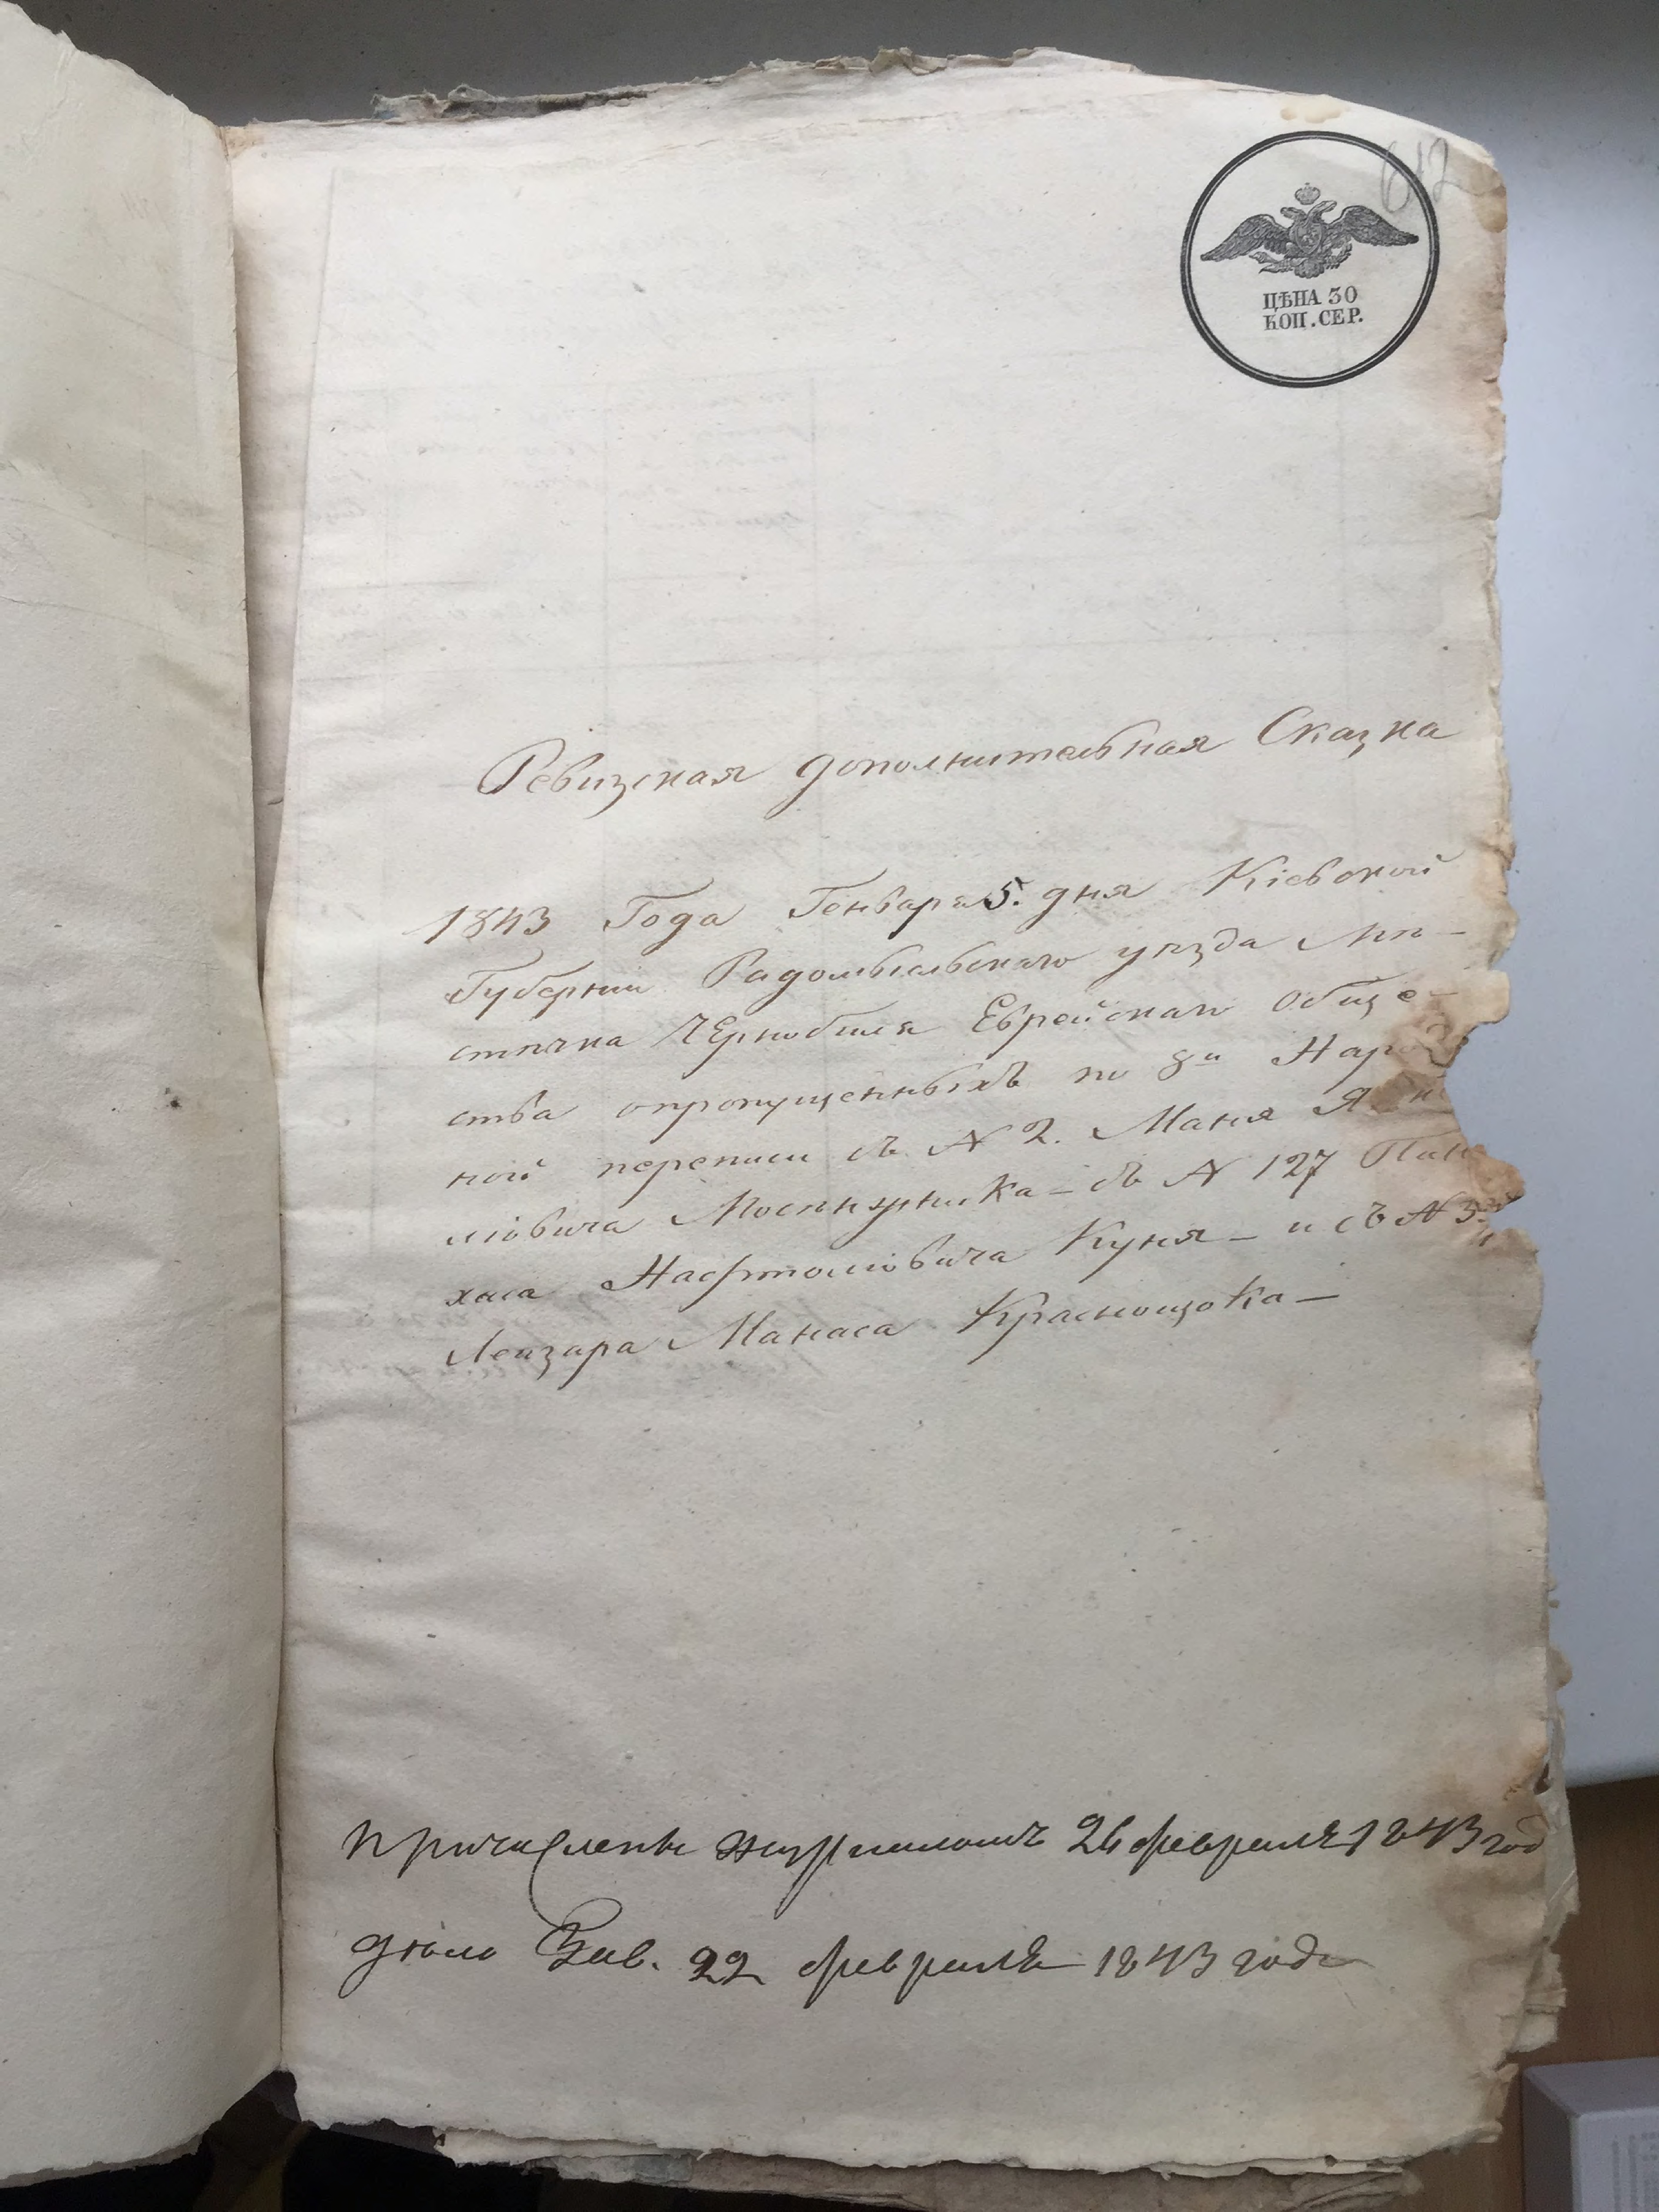 ЦѢНА 30
КОП. СЕР.
Ревизская дополнительная Сказка
1843 Года Генваря 5. дня Кіевской
Губерніи Радомысльскаго уѣзда Мѣ-
стѣчка Чернобыля Еврейскаго обще-
ства опропущенныхъ по 8й Народ
ной переписи съ № 2. Маня
Мосѣжника - съ № 127 Пин
хаса Нафтоліовича Куня - и съ №
Лейзара Манаса Краснощока -
Причислены журналомъ 26 февраля 1843 год
дѣло Зав. 22 февраля 1843 года